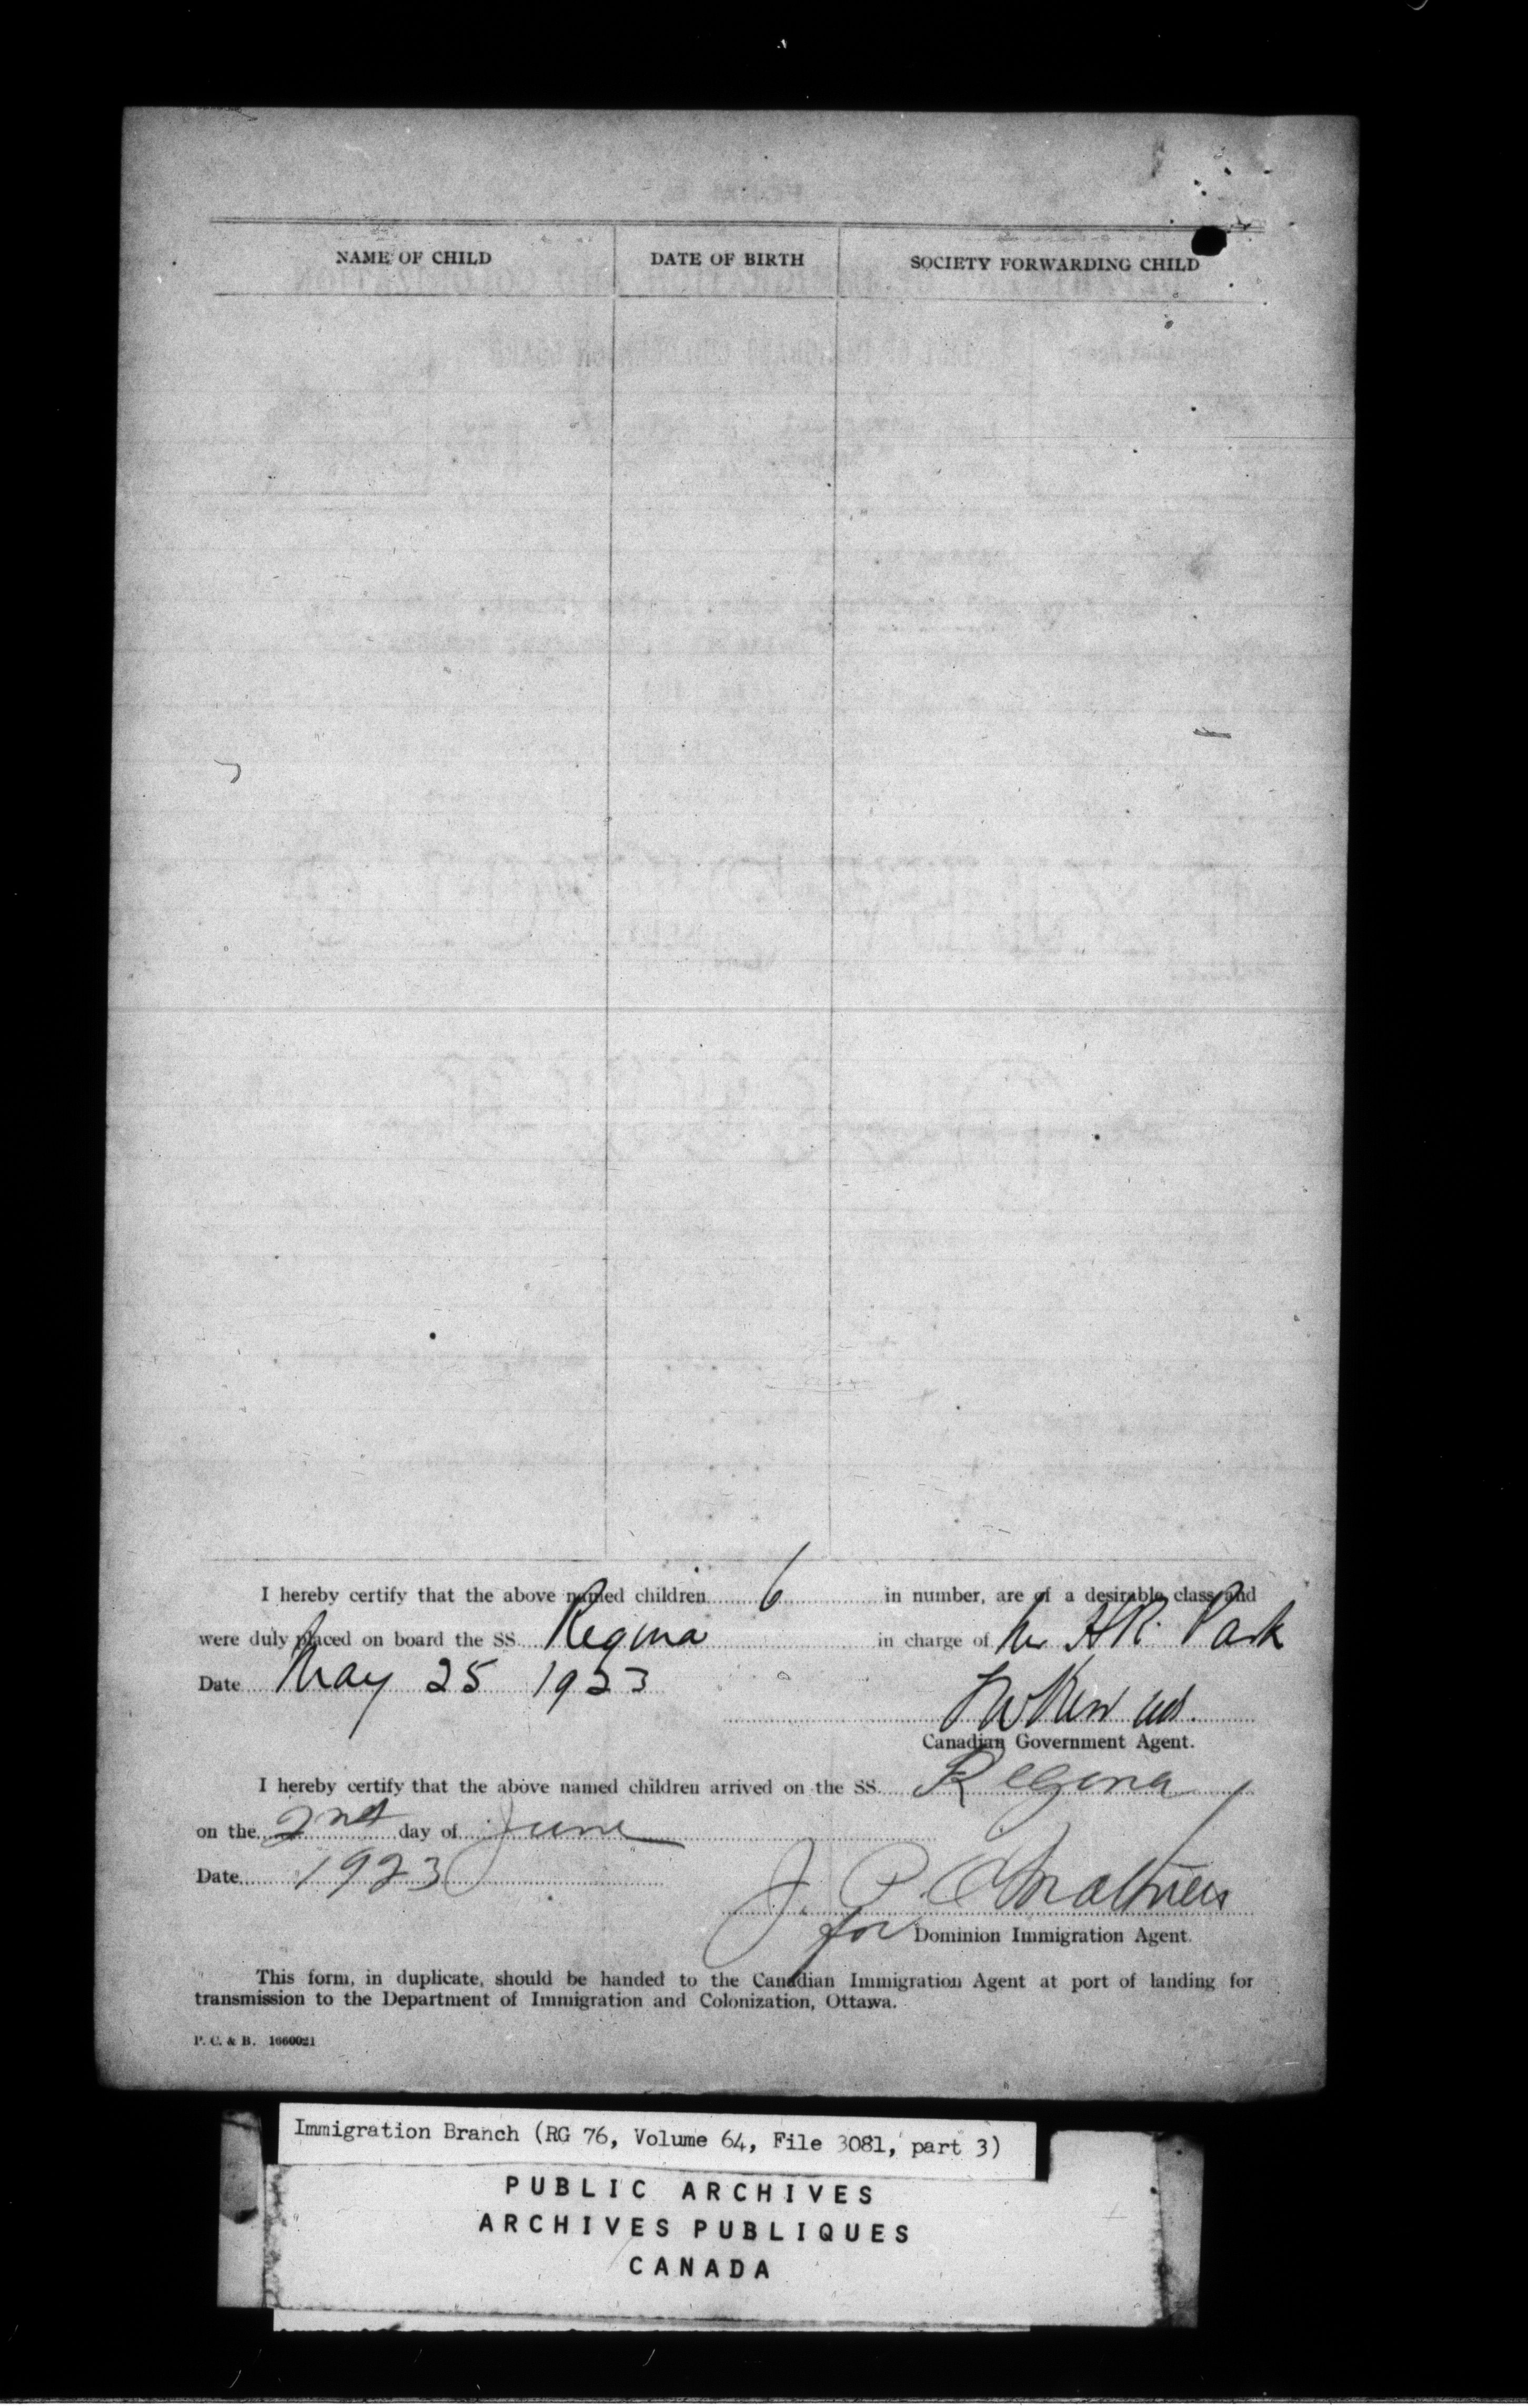 NAME OF CHILD DATE OF BIRTH SOCIETY FORWARDING CHILD
I hereby certify that the above named children 6 in number, are of a desirable class and
were duly placed on board the SS. Regina in charge of Mr H R. Park
Date May 25 1923
Canadian Government Agent.
I hereby certify that the above named children arrived on the SS. Regina
on the 2nd day of June
Date 1923
J. P.
for Dominion Immigration Agent.
This form, in duplicate, should be handed to the Canadian Immigration Agent at port of landing for
transmission to the Department of Immigration and Colonization, Ottawa.
P. C. & B. 1660021
Immigration Branch (RG 76, Volume 64, File 3081, part 3)
PUBLIC ARCHIVES
ARCHIVES PUBLIQUES
CANADA